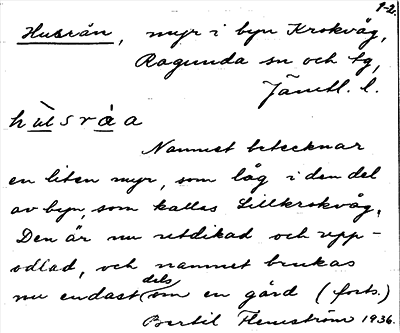 1-2.
Husrån, myr i byn Krokvåg,
Ragunda sn och tg,
Jämtl. l.
hùtsrȧa
Namnet betecknar
en liten myr, som låg i den del
av byn, som kallas Lillkrokvåg.
Den är nu utdikad och upp-
odlad, och namnet brukas
nu endast dels om en gård (forts.)
Bertil Flemström 1936.